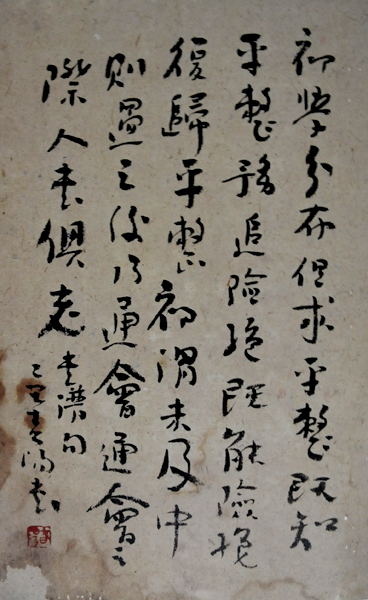 初學分布但求平整既知
平整務追險絕既能險絕
復歸平整初謂未及中
則過之後乃通會通會之
際人書俱老
書譜句
己丑 陽書